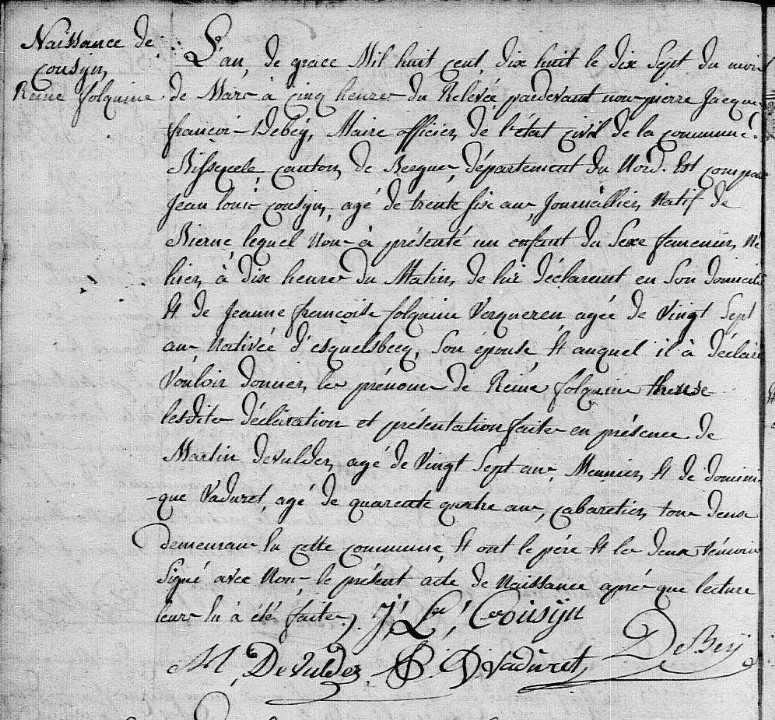 Naissance de
Cousyn,
Reine folquine
L'an de grace Mil huit cent dix huit le dix Sept du mois
de Mars à cinq heures du Relevée pardevant nous pierre Jacque
françois Debeÿ, Maire officier de l'état civil de la commune
Bissezeele, canton de Bergues, département du Nord. Est compa
Jean louis Cousyn, agé de trente six ans, Journaillier, Natif de
Bierne, lequel nous à présenté un enfant du Sexe femenin, Né
hier, à dix heures du Matin, de lui déclarant en Son domicile
et de Jeanne françoise folquine Verqueren agée de Vingt Sept
ans Nativée d'esquelsbecq, Son épouse et auquel il à déclaré
Vouloir donner les prénoms de Reine folquine therese
lesdite déclaration et présentation faites en présence de
Martin deVulder, agé de Vingt Sept ans, Meunier, et de domini-
-que Vaduret, agé de quarente quatre ans, cabaretier, tous deux
demeurans en cette commune, et ont le père et les deux témoins
Signé avec Nous, le présent acte de Naissance après que lecture
leurs en à été faite. J. L. Cousijn
M. DeVulder D Vaduret DeBeÿ